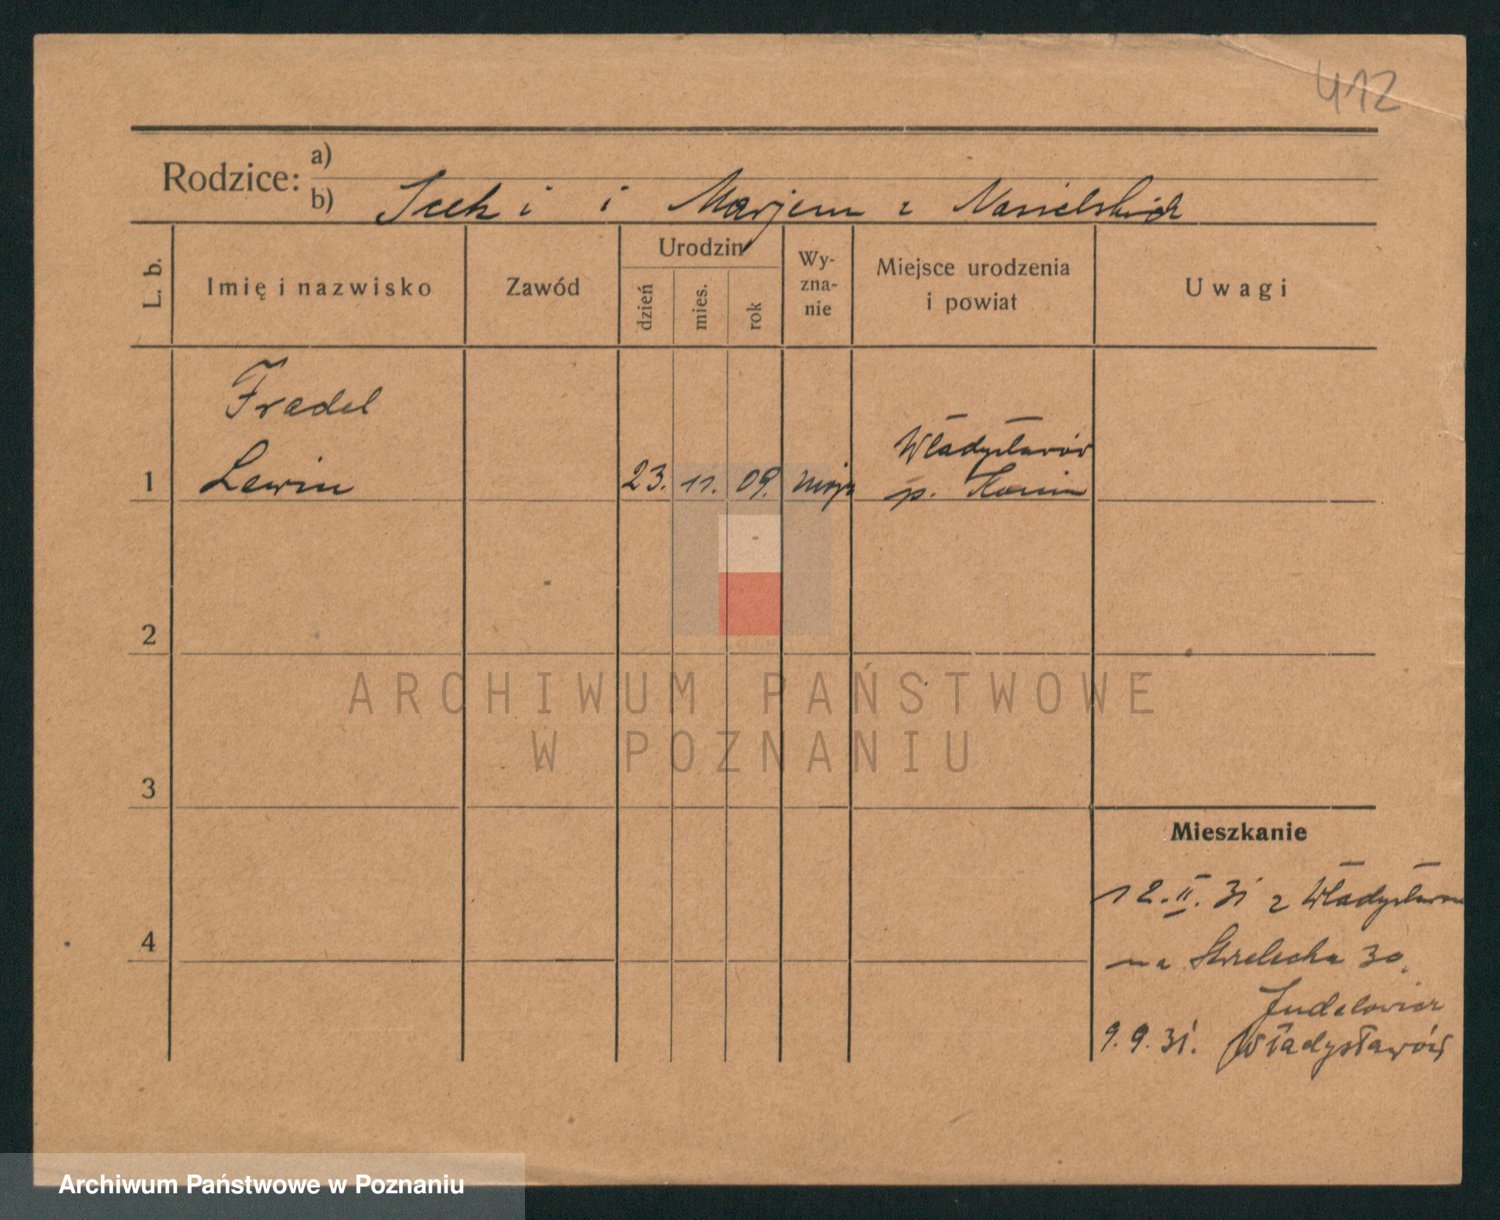 412
Rodzice: a)
b) Icek i i Marjem z Nasielskich
L. b.
Imię i nazwisko
Zawód
Urodzin
dzień
mies.
rok
Wy-
zna-
nie
Miejsce urodzenia
i powiat
Uwagi
Fradel
Lewin
1
23. 11. 09. mojż
Władysławów
p. Konin
2
ARCHIWUM PAŃSTWOWE
W POZNANIU
3
Mieszkanie
4
12. II. 31 z Władysławow
na Strzelecka 30,
Judelowicz
9. 9. 31. Władysławów
Archiwum Państwowe w Poznaniu